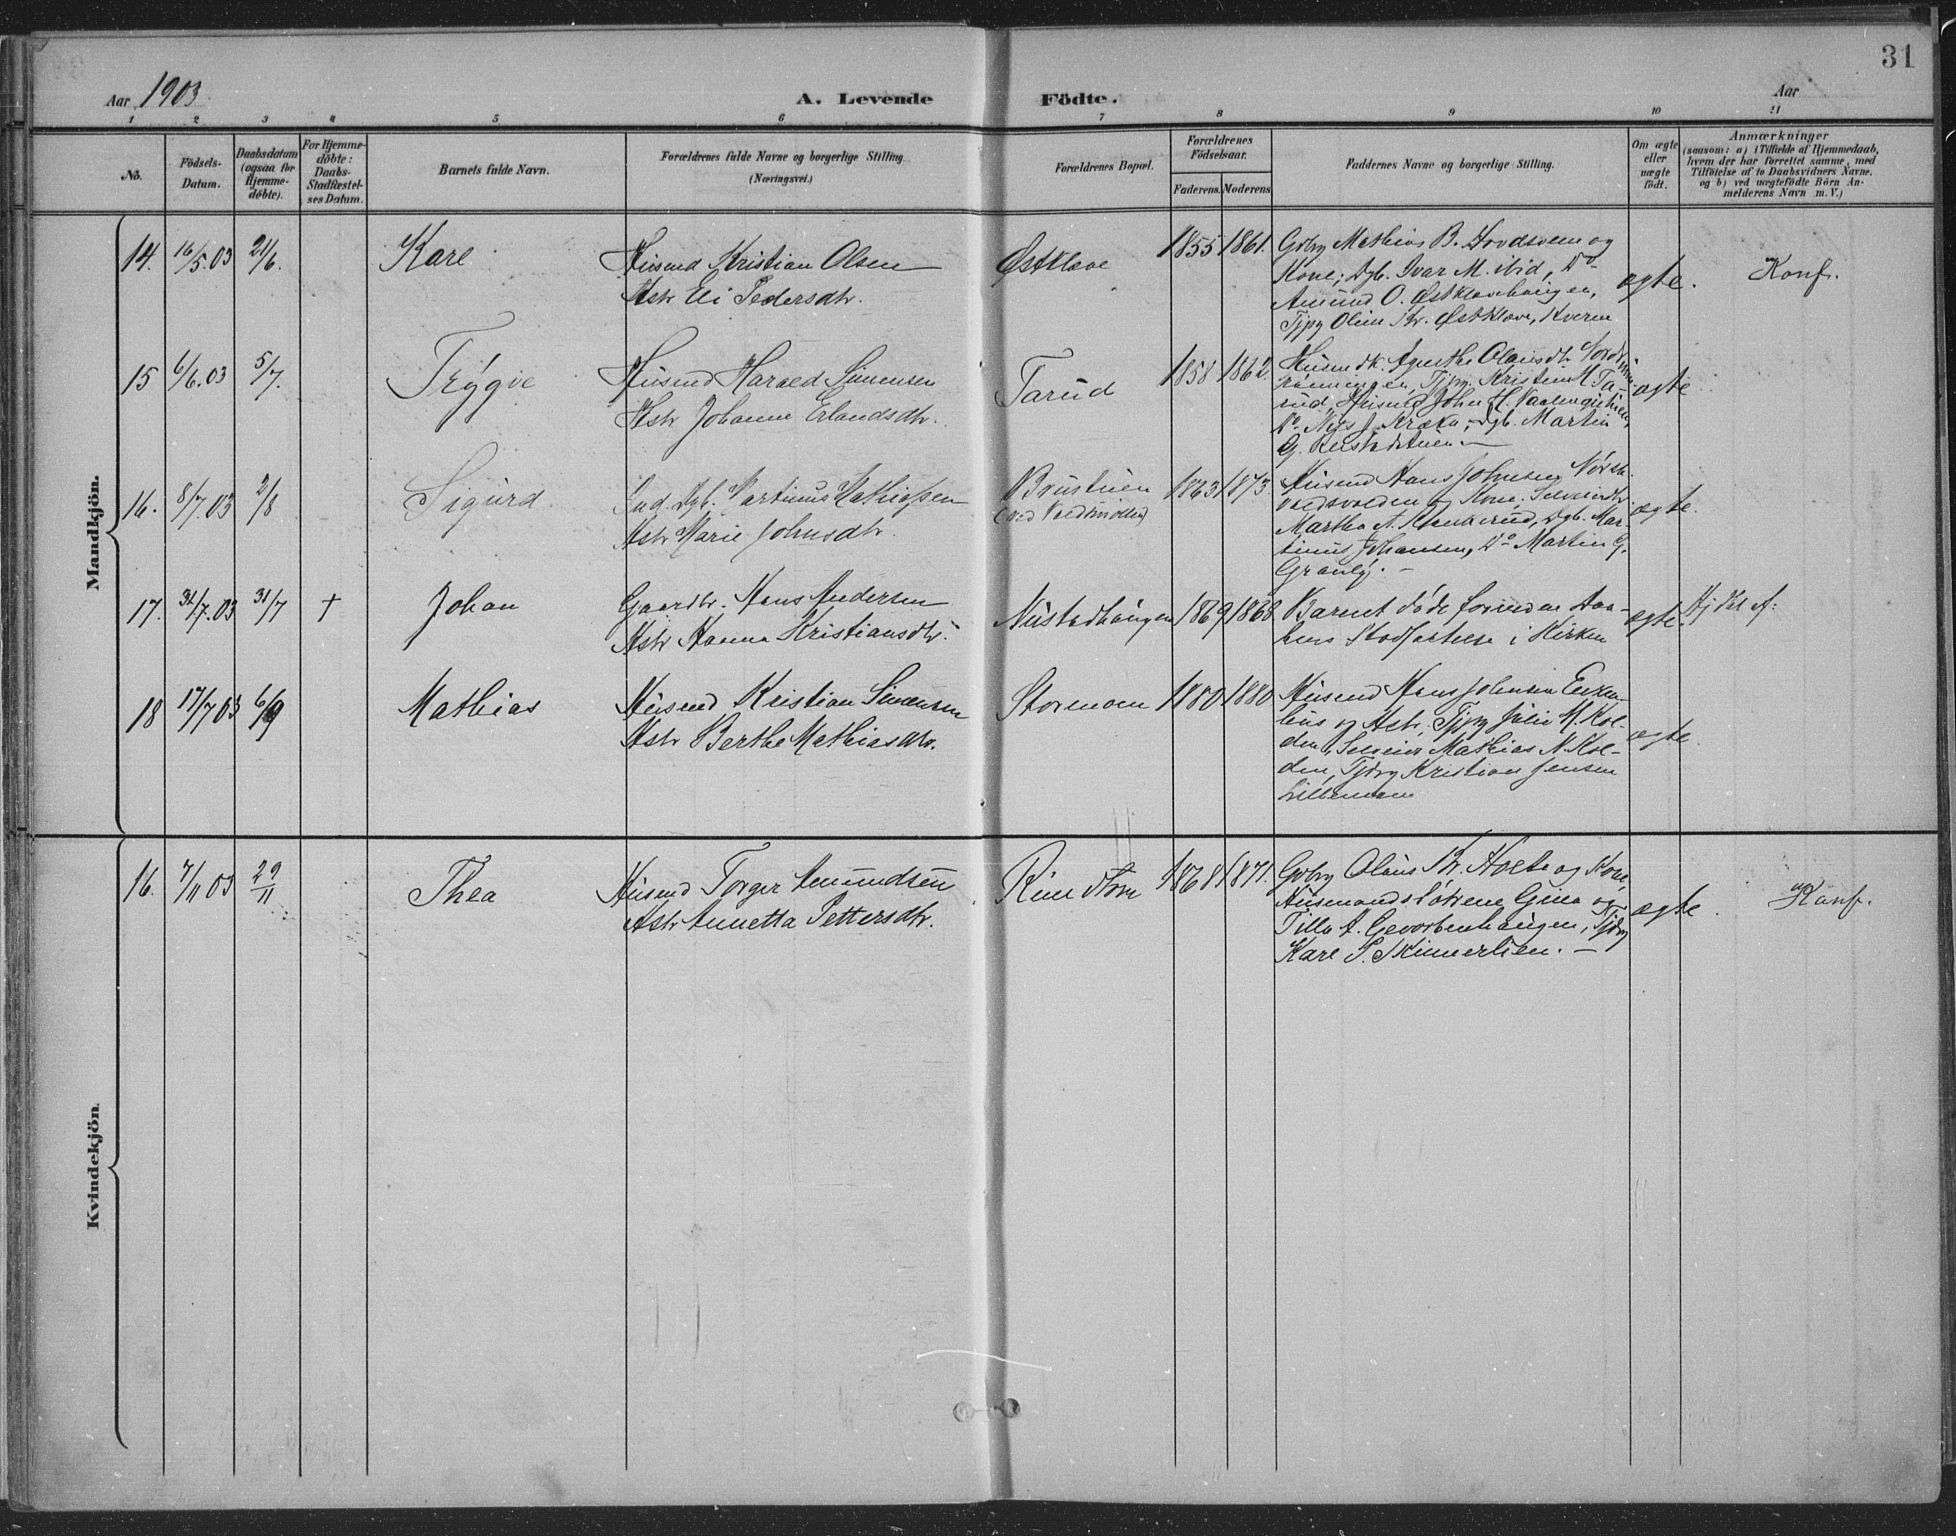 31
Aar 1903.
A. Levende Födte.
Aar
1 2 3 4 5 6 7 8 9 10 11
No.
Födsels-
Datum.
Daabsdatum
(ogsaa for
Hjemme-
döbte).
For Hjemme-
döbte:
Daabs-
Stadfæstel-
ses Datum.
Barnets fulde Navn.
Forældrenes fulde Navne og borgerlige Stilling.
(Næringsvei.)
Forældrenes Bopæl.
Forældrenes
Födselsaar.
Faderens. Moderens.
Faddernes Navne og borgerlige Stilling.
Om ægte
eller
uægte
födt.
Anmærkninger
(saasom: a) i Tilfælde af Hjemmedaab,
hvem der har forrettet samme, med
Tilföielse af to Daabsvidners Navne.
og b) ved uægtefödte Börn An-
melderens Navn m. V.)
Mandkjön.
14. 16/5.03 21/6. Kare
Husmd Kristian Olsen
Hstr Eli Pedersdtr.
Østkløve
1855 1861.
Grbr Mathias B. og
Kone; Ugk. Ivar M. ibid, Do
Amund O. Østkløvehaugen,
Tjpg Oline Kr. Østkløve, Kværn
ægte.
Konf.
15 6/6.03 5/7. Trygve
Husmd Harald Simensen
Hstr Johanne Erlandsdtr.
Tarud
1858 1862
Agnethe Olausdtr
Tjpg. Kristine M. Ta-
rud, Husmd John H.
Do. Nils J. Kræka, Ugk. Martin
G.
ægte
16. 8/7.03 2/8 Sigurd
Ind. Dgb. Martinus Mathiassen
Hstr Marie Johnsdtr.
Brustuen
(ved Voldmøllen)
1863 1873
Husmd Hans Johnsen
og Kone,
Martha A. Dgb. Mar-
tinus Johansen, Do Martin G.
Granly. —
ægte.
17. 31/7.03 31/7 † Johan
Gaardbr. Hans Andersen
Hstr Hanna Kristiansdtr.
Nustadhaugen
1869 1868
Barnet døde forinden Daa-
bens Stadfæstelse i Kirken
ægte.
18 17/7 03 6/9 Mathias
Husmd Kristian Simensen
Hstr Berthe Mathiasdtr.
Stormoen
1880 1880
Husmd Hans Johnsen
hus og Hstr. Tjpg Julie M. Kol-
den, Selveier Mathias N. Kol-
den, Tjdrg Kristian Jensen
Lillemoen
ægte.
Kvindekjön.
16. 7/11 03 29/11 Thea
Husmd Torger Amundsen
Hstr Annetta Pettersdtr.
1868 1871.
Grbrg Olaus Kr. Holte og Kone,
Husmandsdøtrene Gina og
Tilla A. Tjdrg
Kare S. Skinnerlien. —
ægte.
Konf.